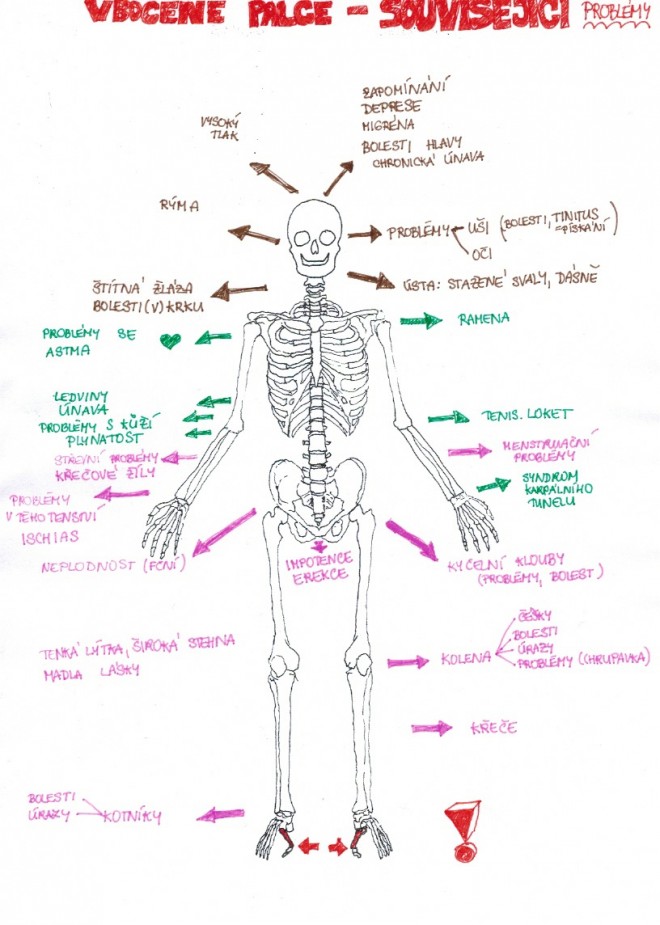 VBOČENÉ PALCE - SOUVISEJÍCÍ PROBLÉMY
ZAPOMÍNÁNÍ
DEPRESE
MIGRÉNA
BOLESTI HLAVY
CHRONICKÁ ÚNAVA
VYSOKÝ
TLAK
RÝMA
PROBLÉMY
UŠI (BOLESTI, TINITUS
=PÍSKÁNÍ)
OČI
ŠTÍTNÁ ŽLÁZA
BOLESTI (V) KRKU
ÚSTA: STAŽENÉ SVALY, DÁSNĚ
PROBLÉMY SE
ASTMA
RAMENA
LEDVINY
ÚNAVA
PROBLÉMY S KŮŽÍ
PLYNATOST
TENIS. LOKET
STŘEVNÍ PROBLÉMY
KŘEČOVÉ ŽÍLY
MENSTRUAČNÍ
PROBLÉMY
SYNDROM
KARPÁLNÍHO
TUNELU
PROBLÉMY
V TĚHOTENSTVÍ
ISCHIAS
NEPLODNOST (FČNÍ)
IMPOTENCE
EREKCE
KYČELNÍ KLOUBY
(PROBLÉMY, BOLEST)
TENKÁ LÝTKA, ŠIROKÁ STEHNA
MADLA LÁSKY
KOLENA
ČÉŠKY
BOLESTI
ÚRAZY
PROBLÉMY (CHRUPAVKA)
KŘEČE
BOLESTI
ÚRAZY
KOTNÍKY
!